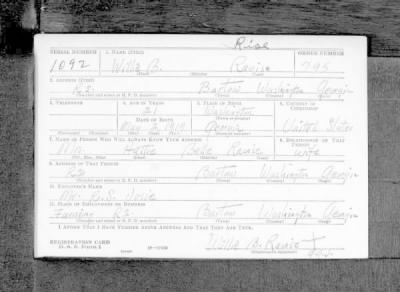 Rise
SERIAL NUMBER 1. NAME (Print) ORDER NUMBER
1092 Willie B. 795
(First) (Middle) (Last)
2. ADDRESS (Print)
R2 Bartow Washington Georgia
(Number and street or R. F. D. number) (Town) (County) (State)
3. TELEPHONE 4. AGE IN YEARS 5. PLACE OF BIRTH 6. COUNTRY OF CITIZENSHIP
21 Washington
DATE OF BIRTH (Town or county)
Georgia United States
(Exchange) (Number) (Mo.) (Day) (Yr.) (State or country)
7. NAME OF PERSON WHO WILL ALWAYS KNOW YOUR ADDRESS 8. RELATIONSHIP OF THAT PERSON
Mrs. Hattie Bell wife
(Mr., Mrs., Miss) (First) (Middle) (Last)
9. ADDRESS OF THAT PERSON
R2 Bartow Washington Georgia
(Number and street or R. F. D. number) (Town) (County) (State)
10. EMPLOYER'S NAME
Mr.
11. PLACE OF EMPLOYMENT OR BUSINESS
Farming R2 Bartow Washington Georgia
(Number and street or R. F. D. number) (Town) (County) (State)
I AFFIRM THAT I HAVE VERIFIED ABOVE ANSWERS AND THAT THEY ARE TRUE.
REGISTRATION CARD
D. S. S. FORM 1
Willie B.